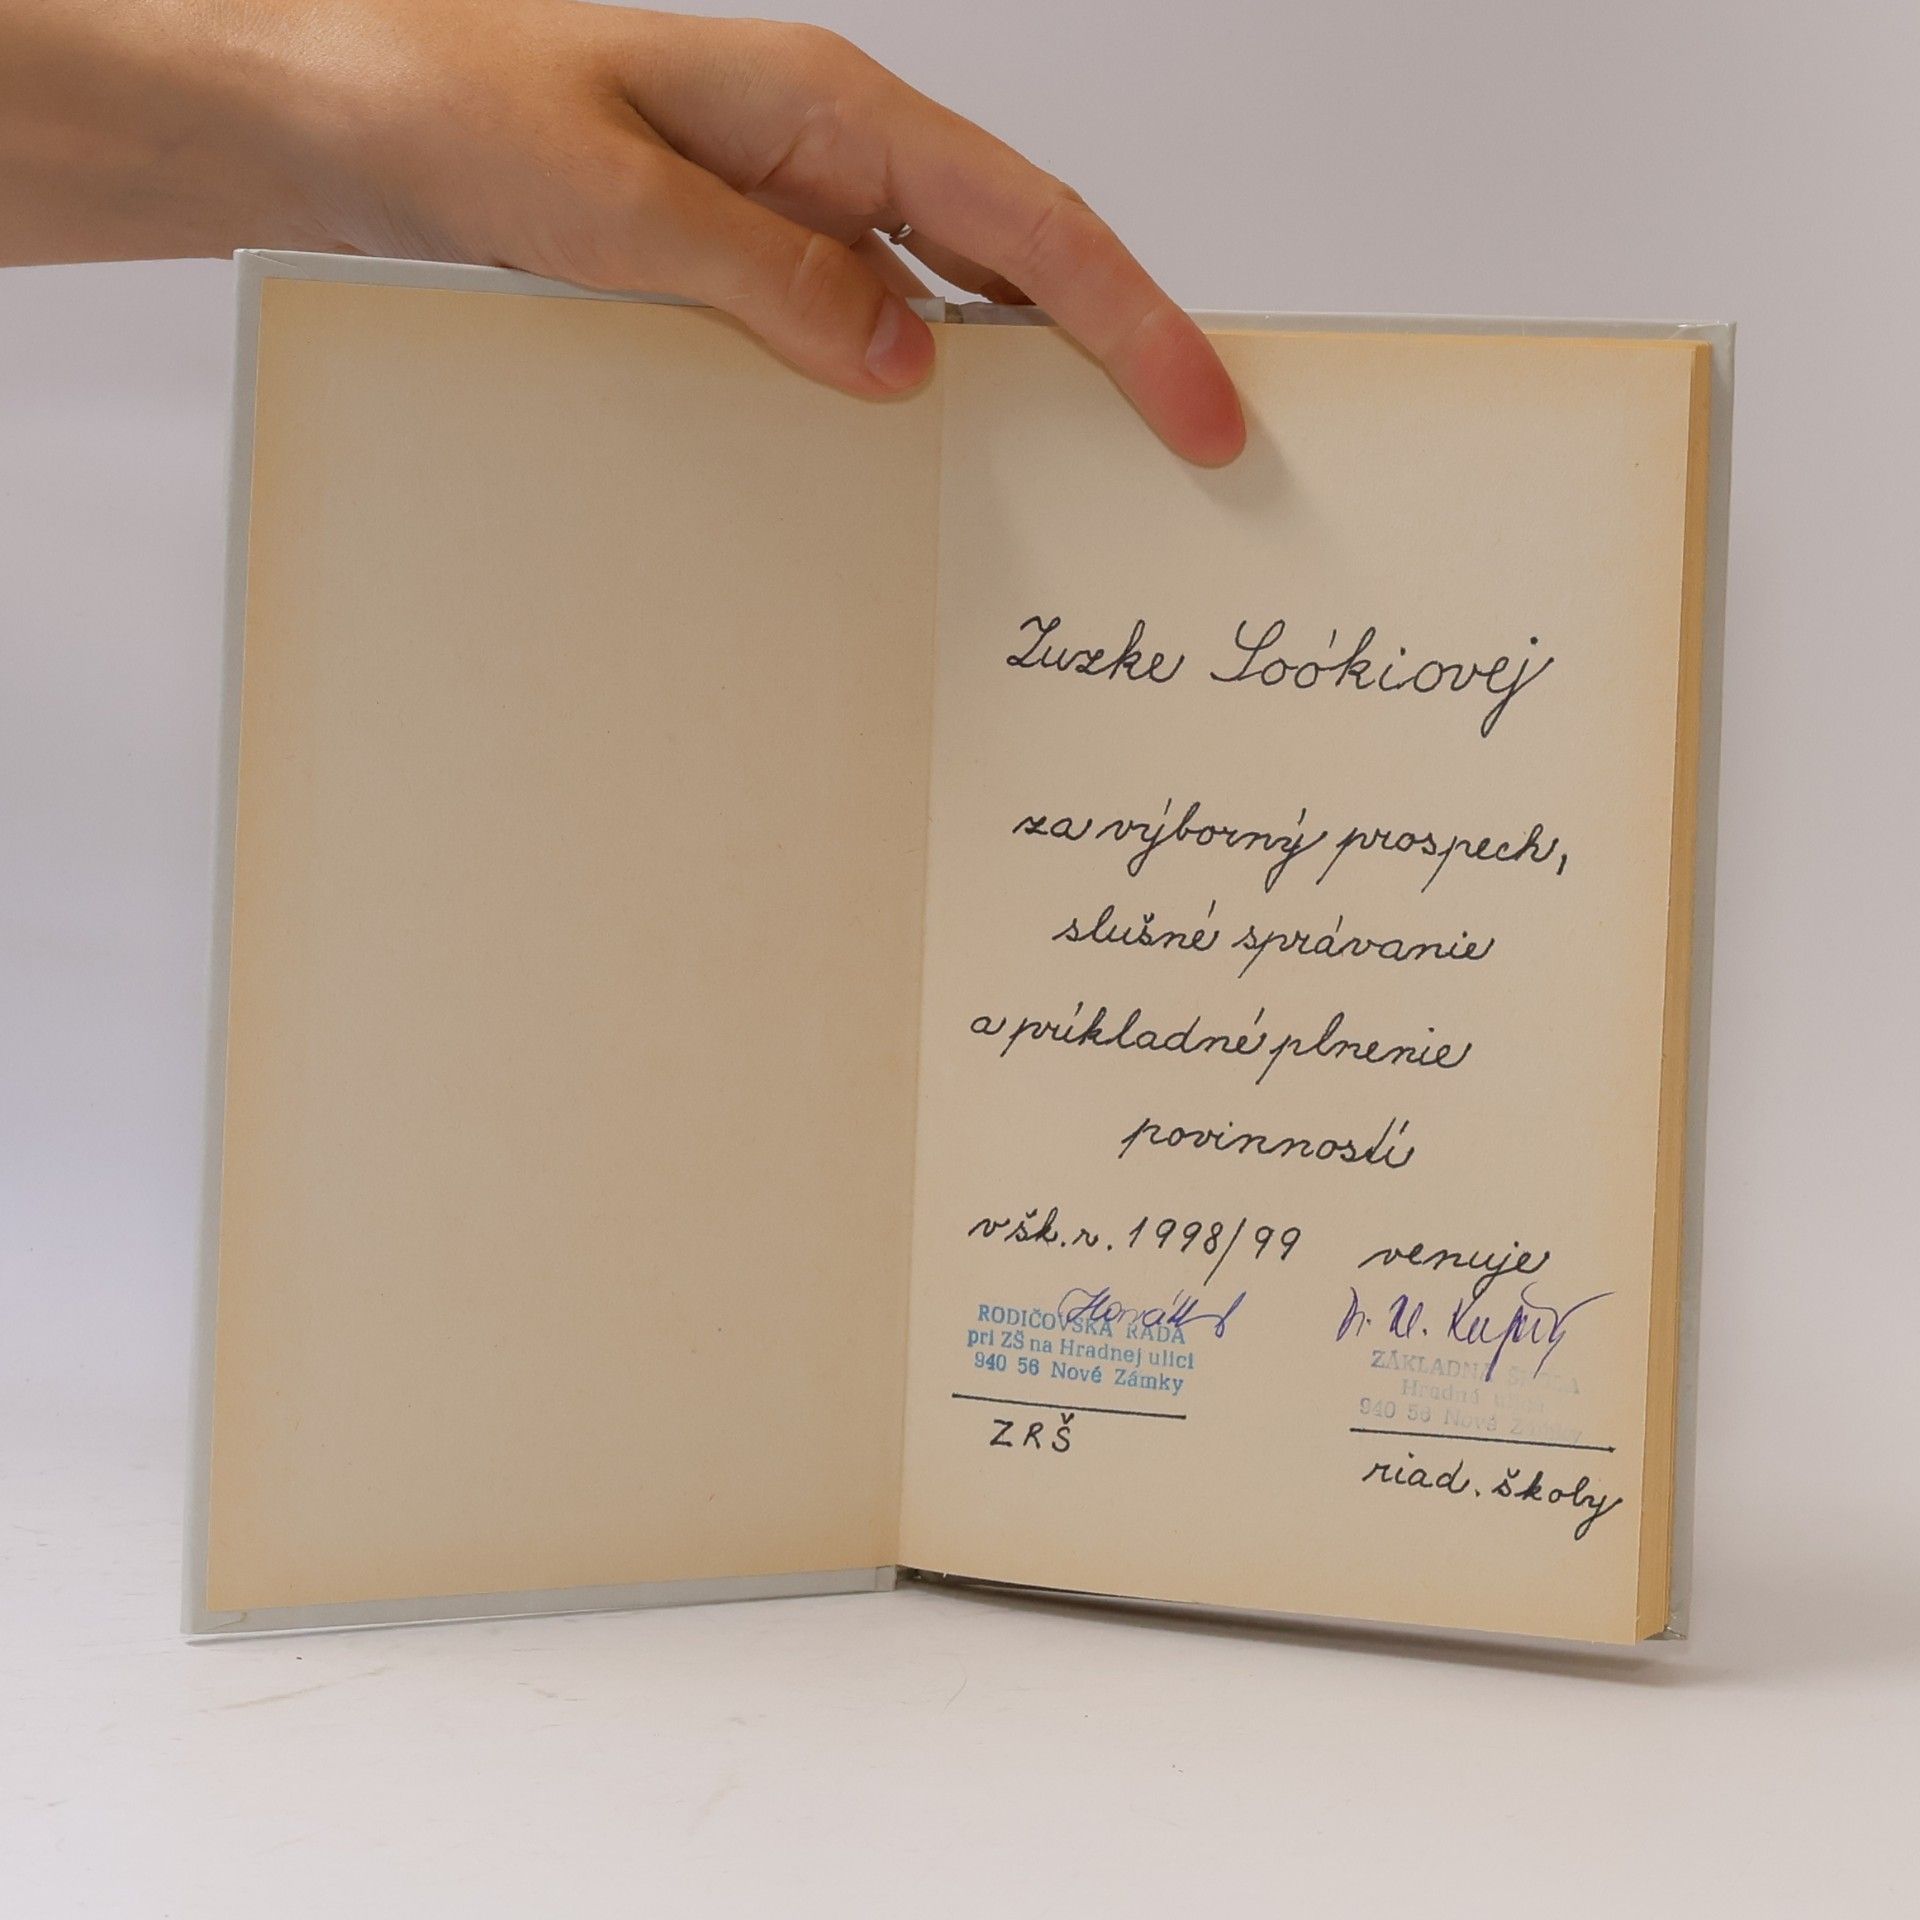 Zuzke Soókiovej
za výborný prospech,
slušné správanie
a príkladné plnenie
povinností
v šk. r. 1998/99 venuje
RODIČOVSKÁ RADA
pri ZŠ na Hradnej ulici
940 56 Nové Zámky
ZRŠ
ZÁKLADNÁ ŠKOLA
Hradná ulica
940 56 Nové Zámky
riad. školy